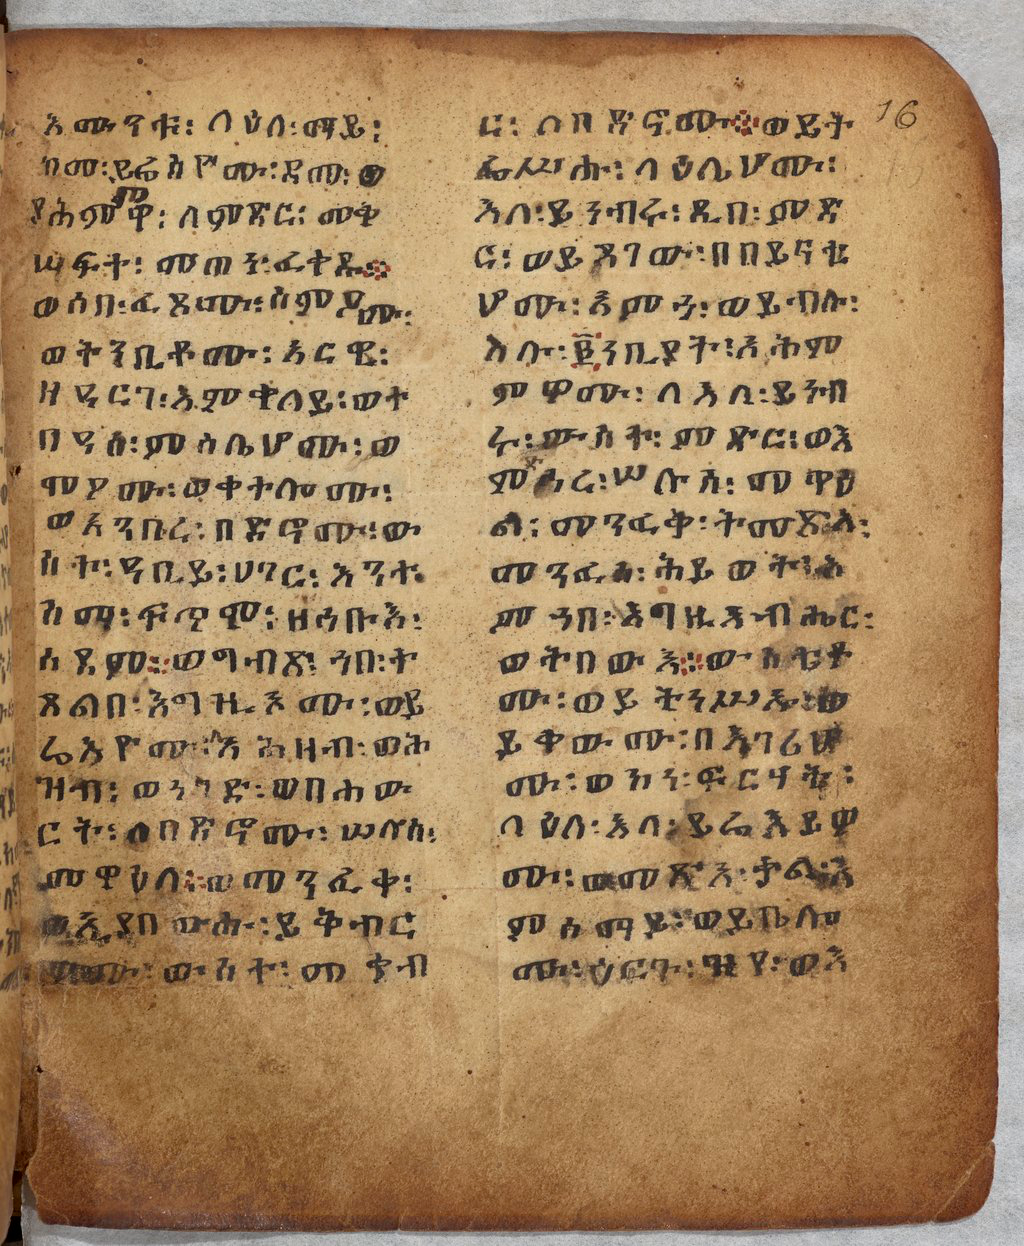 እሙንቱ፡ ላዕለ፡ ማይ፡
ከመ፡ ይሬእዮሙ፡ ደመ፡ ወ
ያሕምምዋ፡ ለምድር፡ መቅ
ሠፍት፡ መጠነ፡ ፈተዉ፨
ወሶበ፡ ፈጸሙ፡ ስምዖሙ፡
ወትንቢቶሙ፡ አርዌ፡
ዘዓርገ፡ እምቀላይ፡ ወት
በዓሰ፡ ምስሌሆሙ፡ ወ
ሞኦሙ፡ ወቀተሎሙ፡
ወአንበረ፡ በድኖሙ፡ ው
ስተ፡ ዓቢይ፡ ሀገር፡ እንተ
ስማ፡ ፍጥሞ፡ ዘሐቡእ፡
ሰዶም፨ ወግብጽ፡ ኀበ፡ ተ
ጸልበ፡ እግዚኦሙ፡ ወይ
ሬእዮሙ፡ እሕዛብ፡ ወሕ
ዝብ፡ ወነገድ፡ ወበሐው
ርት፡ ለበድኖሙ፡ ሠሉስ፡
መዋዕለ፨ ወመንፈቀ፡
ወኢያበውሑ፡ ይቅብር
ዎሙ፡ ውስተ፡ መቃብ
ር፡ ለበድኖሙ፨ ወይት
ፌሥሑ፡ ላዕሌሆሙ፡
እለ፡ ይነብሩ፡ ዲበ፡ ምድ
ር፡ ወይጼገው፡ በበይናቲ
ሆሙ፡ አምኃ፡ ወይብሉ፡
እሉ፡ ፪ነቢያት፡ አሕም
ምዎሙ፡ ለእለ፡ ይነብ
ሩ፡ ውስተ፡ ምድር፡ ወእ
ምድኅረ፡ ሠሉስ፡ መዋዕ
ል፡ መንፈቅ፡ ትመጽእ፡
መንፈሰ፡ ሕይወት፡ እ
ምኀበ፡ እግዚአብሔር፡
ወትበውእ፨ ውስቴቶ
ሙ፡ ወይትነሥኡ፡ ወ
ይቀውሙ፡ በእገሪሆ
ሙ፡ ወኮነ፡ ፍርሃት፡
ላዕለ፡ እለ፡ ይሬእይዎ
ሙ፡ ወመጽአ፡ ቃል፡ እ
ምሰማይ፡ ወይቤሎ
ሙ፡ ዕርጉ፡ ዝየ፡ ወእ
16